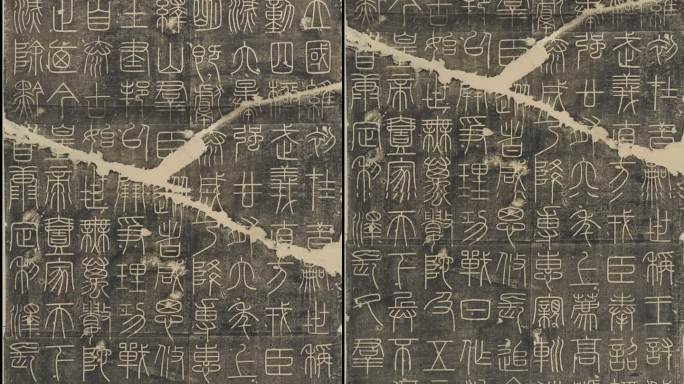 立國維初在昔嗣世稱
動四極武義直方戎臣
滅六暴強廿有六年上
明既獻泰成乃降專惠
繹山羣臣從者咸思攸
土建邦以開爭理功戰
自泰古始世無萬數陀
止迺今皇帝壹家天下
滅除黔首康定利澤長
初在昔嗣世稱王討
極武義直方戎臣奉詔
強廿有六年上薦高
泰成乃降專惠親巡
臣從者咸思攸長追
邦以開爭理功戰日作
古始世無萬數陀及五
今皇帝壹家天下兵不
黔首康定利澤長久羣